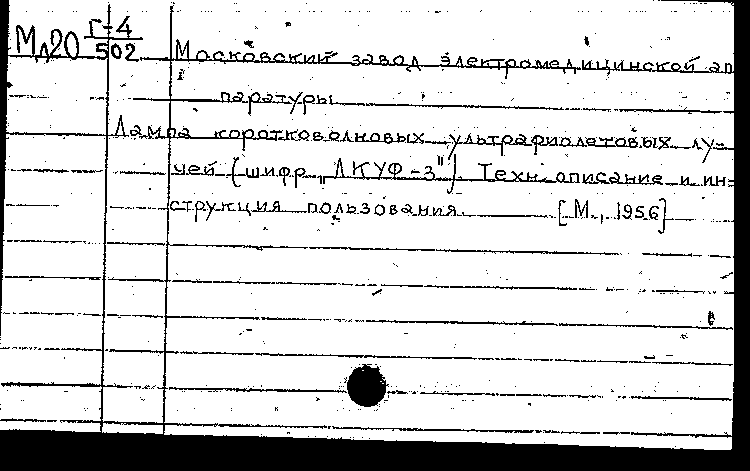 Мл20 Г-4/502
Московский завод электромедицинской ап
паратуры
Лампа коротковолновых ультрафиолетовых лу-
чей (шифр „ЛКУФ-3"). Техн. описание и ин-
струкция пользования. [М., 1956]